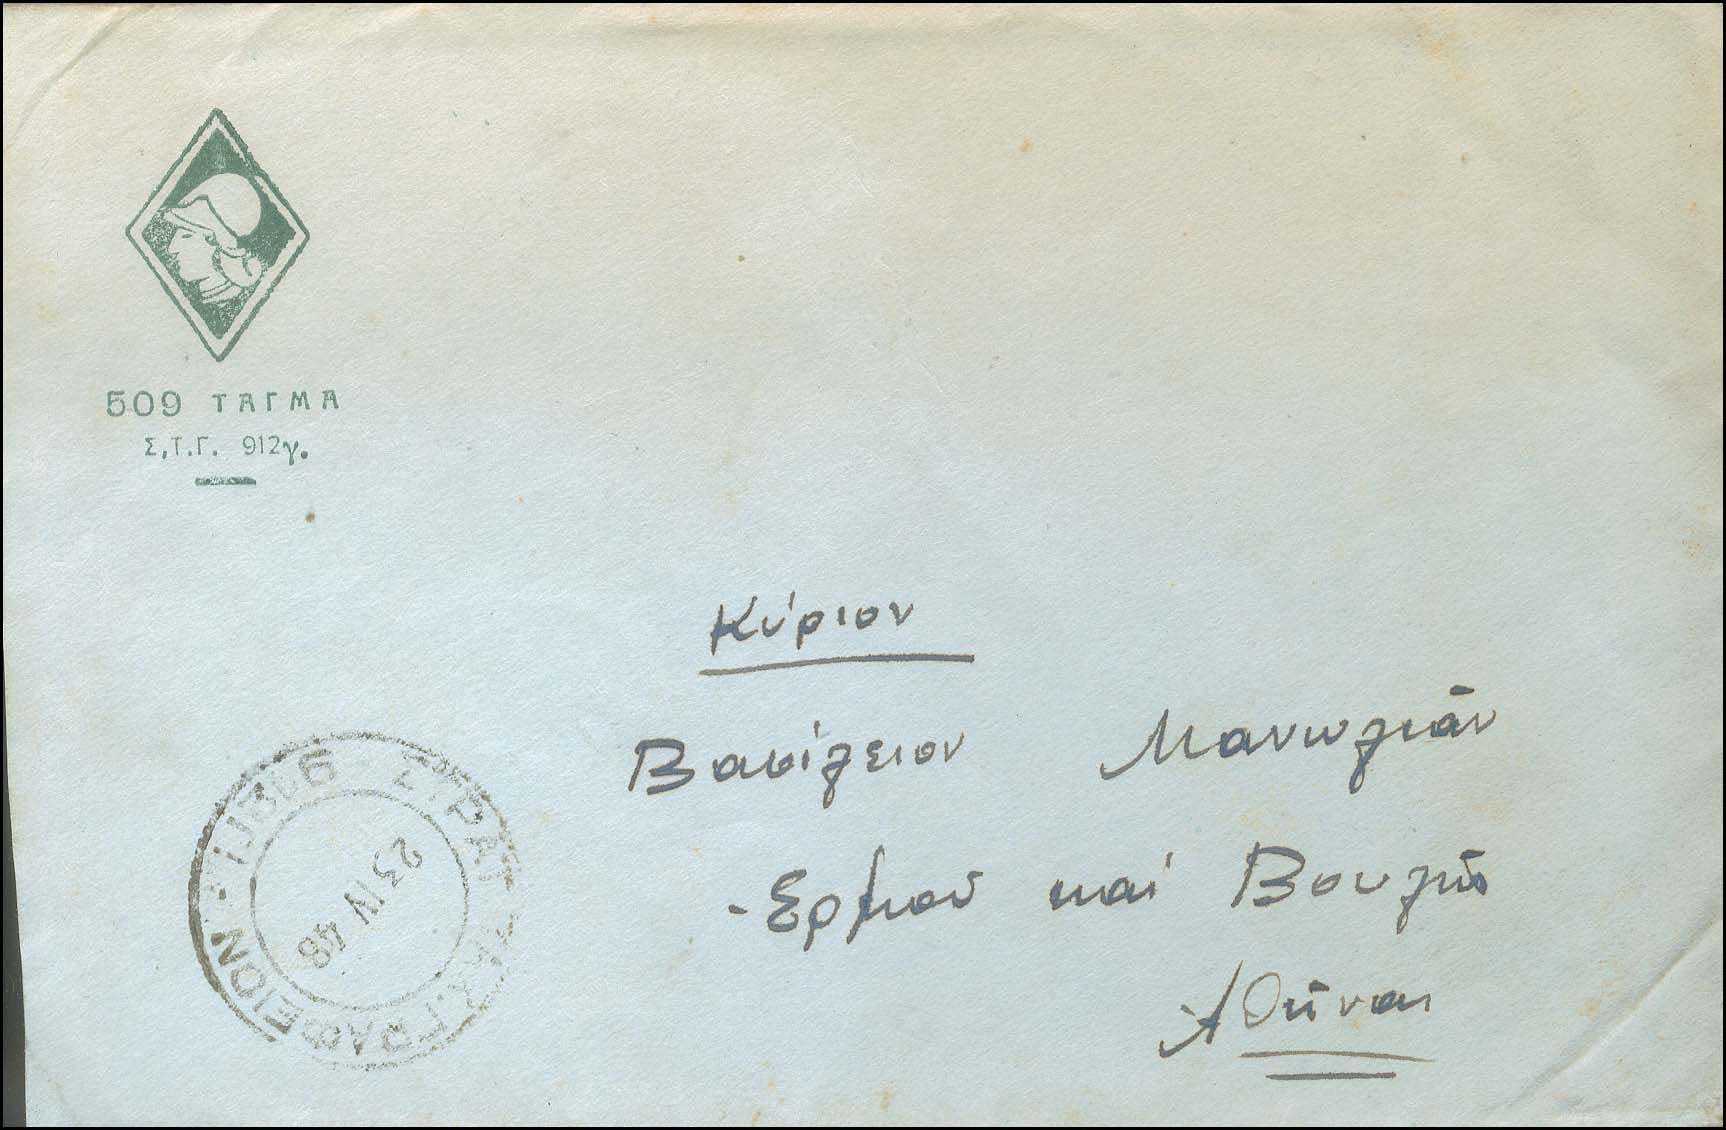 509 ΤΑΓΜΑ
Σ,Τ.Γ. 912γ.
Κύριον
Βασίλειον Μανωλιᾶν
Ερμού και Βουλῆς
Ἀθήναι
ΣΤΡΑΤ. ΤΑΧ. ΓΡΑΦΕΙΟΝ
23 IV 48